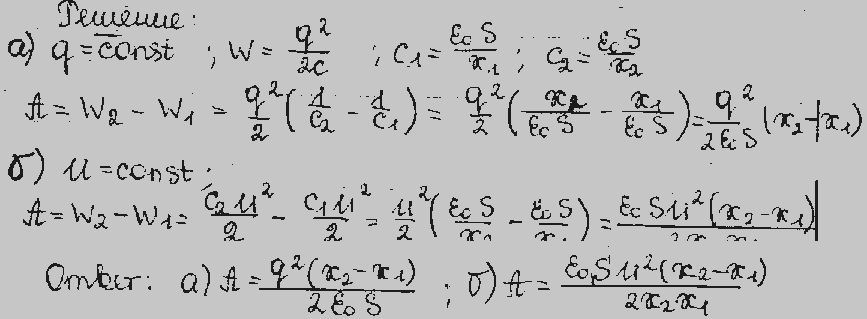 Решение:
а) q = const ; W = q²/2c ; C₁ = ε₀S/x₁ ; C₂ = ε₀S/x₂
A = W₂ - W₁ = q²/2 (1/C₂ - 1/C₁) = q²/2 (x₂/ε₀S - x₁/ε₀S) = q²/2ε₀S (x₂ - x₁)
б) U = const.
A = W₂ - W₁ = C₂U²/2 - C₁U²/2 = U²/2 (ε₀S/x₂ - ε₀S/x₁) = ε₀SU²(x₂ - x₁)/2x₂x₁
Ответ: а) A = q²(x₂ - x₁)/2ε₀S ; б) A = ε₀SU²(x₂ - x₁)/2x₂x₁